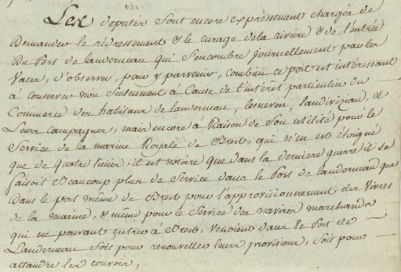 Les députés sont encore expressément chargés de
Demander le redressement & le curage de la rivière & de l'entrée
du Port de landerneau qui s'encombre journellement par les
Vases, d'observer, pour y parvenir, combien ce port est intéressant
à conserver non seulement à Cause de l'intérêt particulier du
Commerce des habitans de landerneau, lesneven, landivisiau, et
Leurs Campagnes, mais encore à Raison de Son utilité pour le
Service de la marine Royale de Brest, qui n'en est éloigné
que de quatre lieues, il est notoire que dans la dernière guerre il se
faisoit Beaucoup plus de Service dans le Port de landerneau que
Dans le port meme de Brest pour l'approvisionnement des Vivres
de la marine, & meme pour le Service des navires marchands
qui ne pouvant entrer à Brest, venoient dans le Port de
Landerneau Soit pour renouveller leurs provisions, Soit pour
attendre les convois,